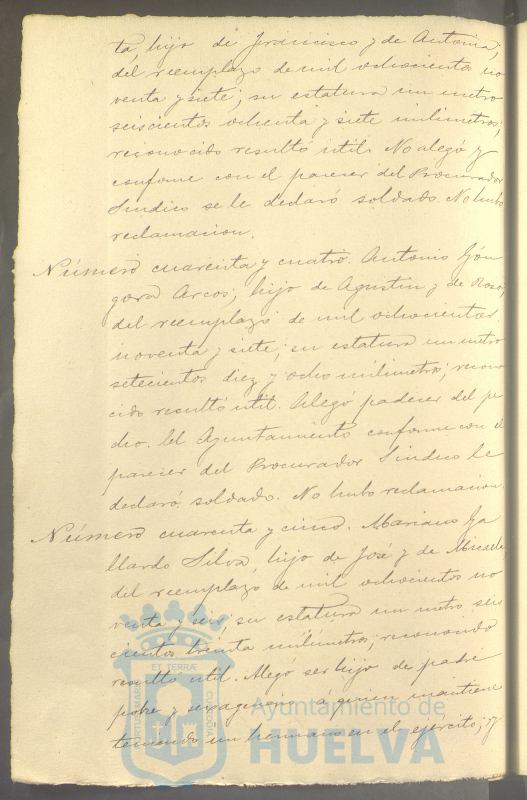 ta, hijo de Francisco y de Antonia;
del reemplazo de mil ochocientos no
venta y siete; su estatura un metro
seiscientos ochenta y siete milimetros;
reconocido resultó util. No alegó y
conforme con el parecer del Procurador
Sindico se le declaró soldado. No hubo
reclamacion.
Número cuarenta y cuatro. Antonio Gón
gora Arcos; hijo de Agustin y de Rosa;
del reemplazo de mil ochocientos
noventa y siete; su estatura un metro
setecientos diez y ocho milimetros; recono
cido resultó util. Alegó padecer del pe
cho. El Ayuntamiento conforme con el
parecer del Procurador Sindico le
declaró soldado. No hubo reclamacion.
Número cuarenta y cinco. Mariano Ga
llardo Silva, hijo de José y de Micaela,
del reemplazo de mil ochocientos no
venta y seis, su estatura un metro seis
cientos treinta milimetros; reconocido
resultó util. Alegó ser hijo de padre
pobre y sexagenario á quien mantiene
teniendo un hermano en el ejército; y
ET TERRÆ
PORTUS MARIS
CUSTODIA
Ayuntamiento de
HUELVA